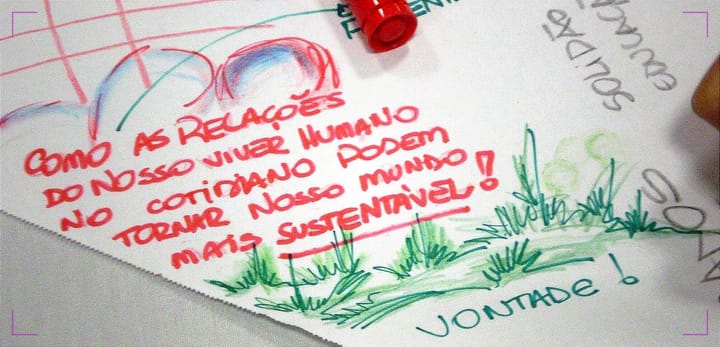 COMO AS RELAÇÕES
DO NOSSO VIVER HUMANO
NO COTIDIANO PODEM
TORNAR NOSSO MUNDO
MAIS SUSTENTÁVEL!
VONTADE!
SOLIDÃO
EDUCAÇÃ